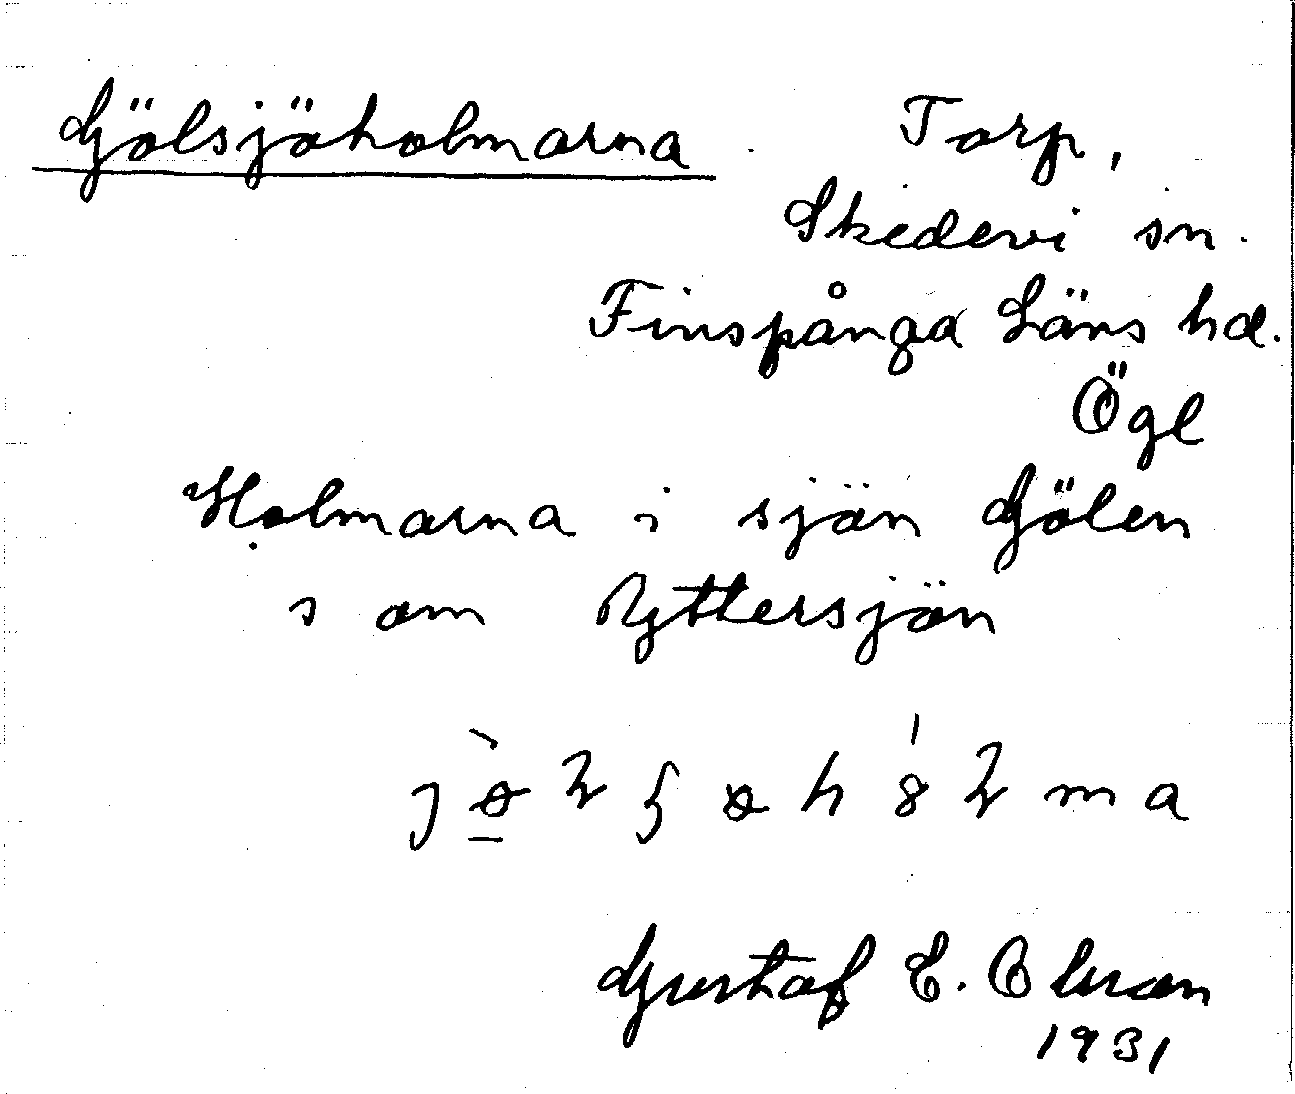 Gölsjöholmarna Torp,
Skedevi sn.
Finspånga Läns hd.
Ögl
Holmarna i sjön Gölen
s om Ryttersjön
Gustaf E. Olsson
1931